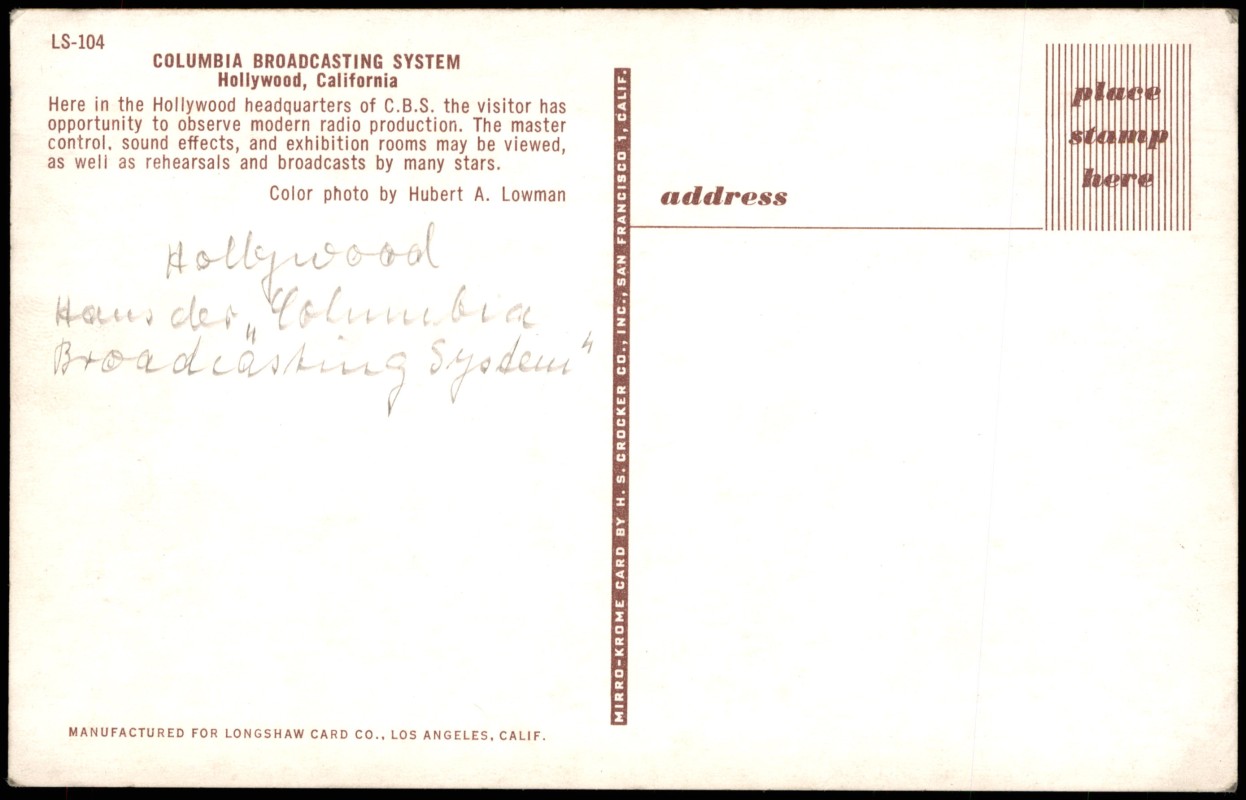 LS-104
COLUMBIA BROADCASTING SYSTEM
Hollywood, California
Here in the Hollywood headquarters of C.B.S. the visitor has
opportunity to observe modern radio production. The master
control, sound effects, and exhibition rooms may be viewed,
as well as rehearsals and broadcasts by many stars.
Color photo by Hubert A. Lowman
Hollywood
Haus der „Columbia
Broadcasting System“
MANUFACTURED FOR LONGSHAW CARD CO., LOS ANGELES, CALIF.
MIRRO-KROME CARD BY H. S. CROCKER CO., INC., SAN FRANCISCO 1, CALIF.
address
place
stamp
here